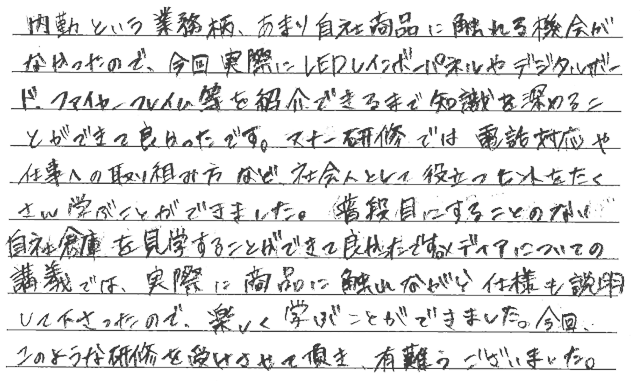 内勤という業務柄、あまり自社商品に触れる機会が
なかったので、今回実際にLEDレインボーパネルやデジタルボー
ド、ファイヤーフレイム等を紹介できるまで知識を深めるこ
とができて良かったです。マナー研修では電話対応や
仕事への取り組み方など、社会人として役立つヒントをたく
さん学ぶことができました。普段目にすることのない
自社倉庫を見学することができて良かったです。メディアについての
講義では、実際に商品に触れながら仕様も説明
して下さったので、楽しく学ぶことができました。今回、
このような研修を受けさせて頂き、有難うございました。